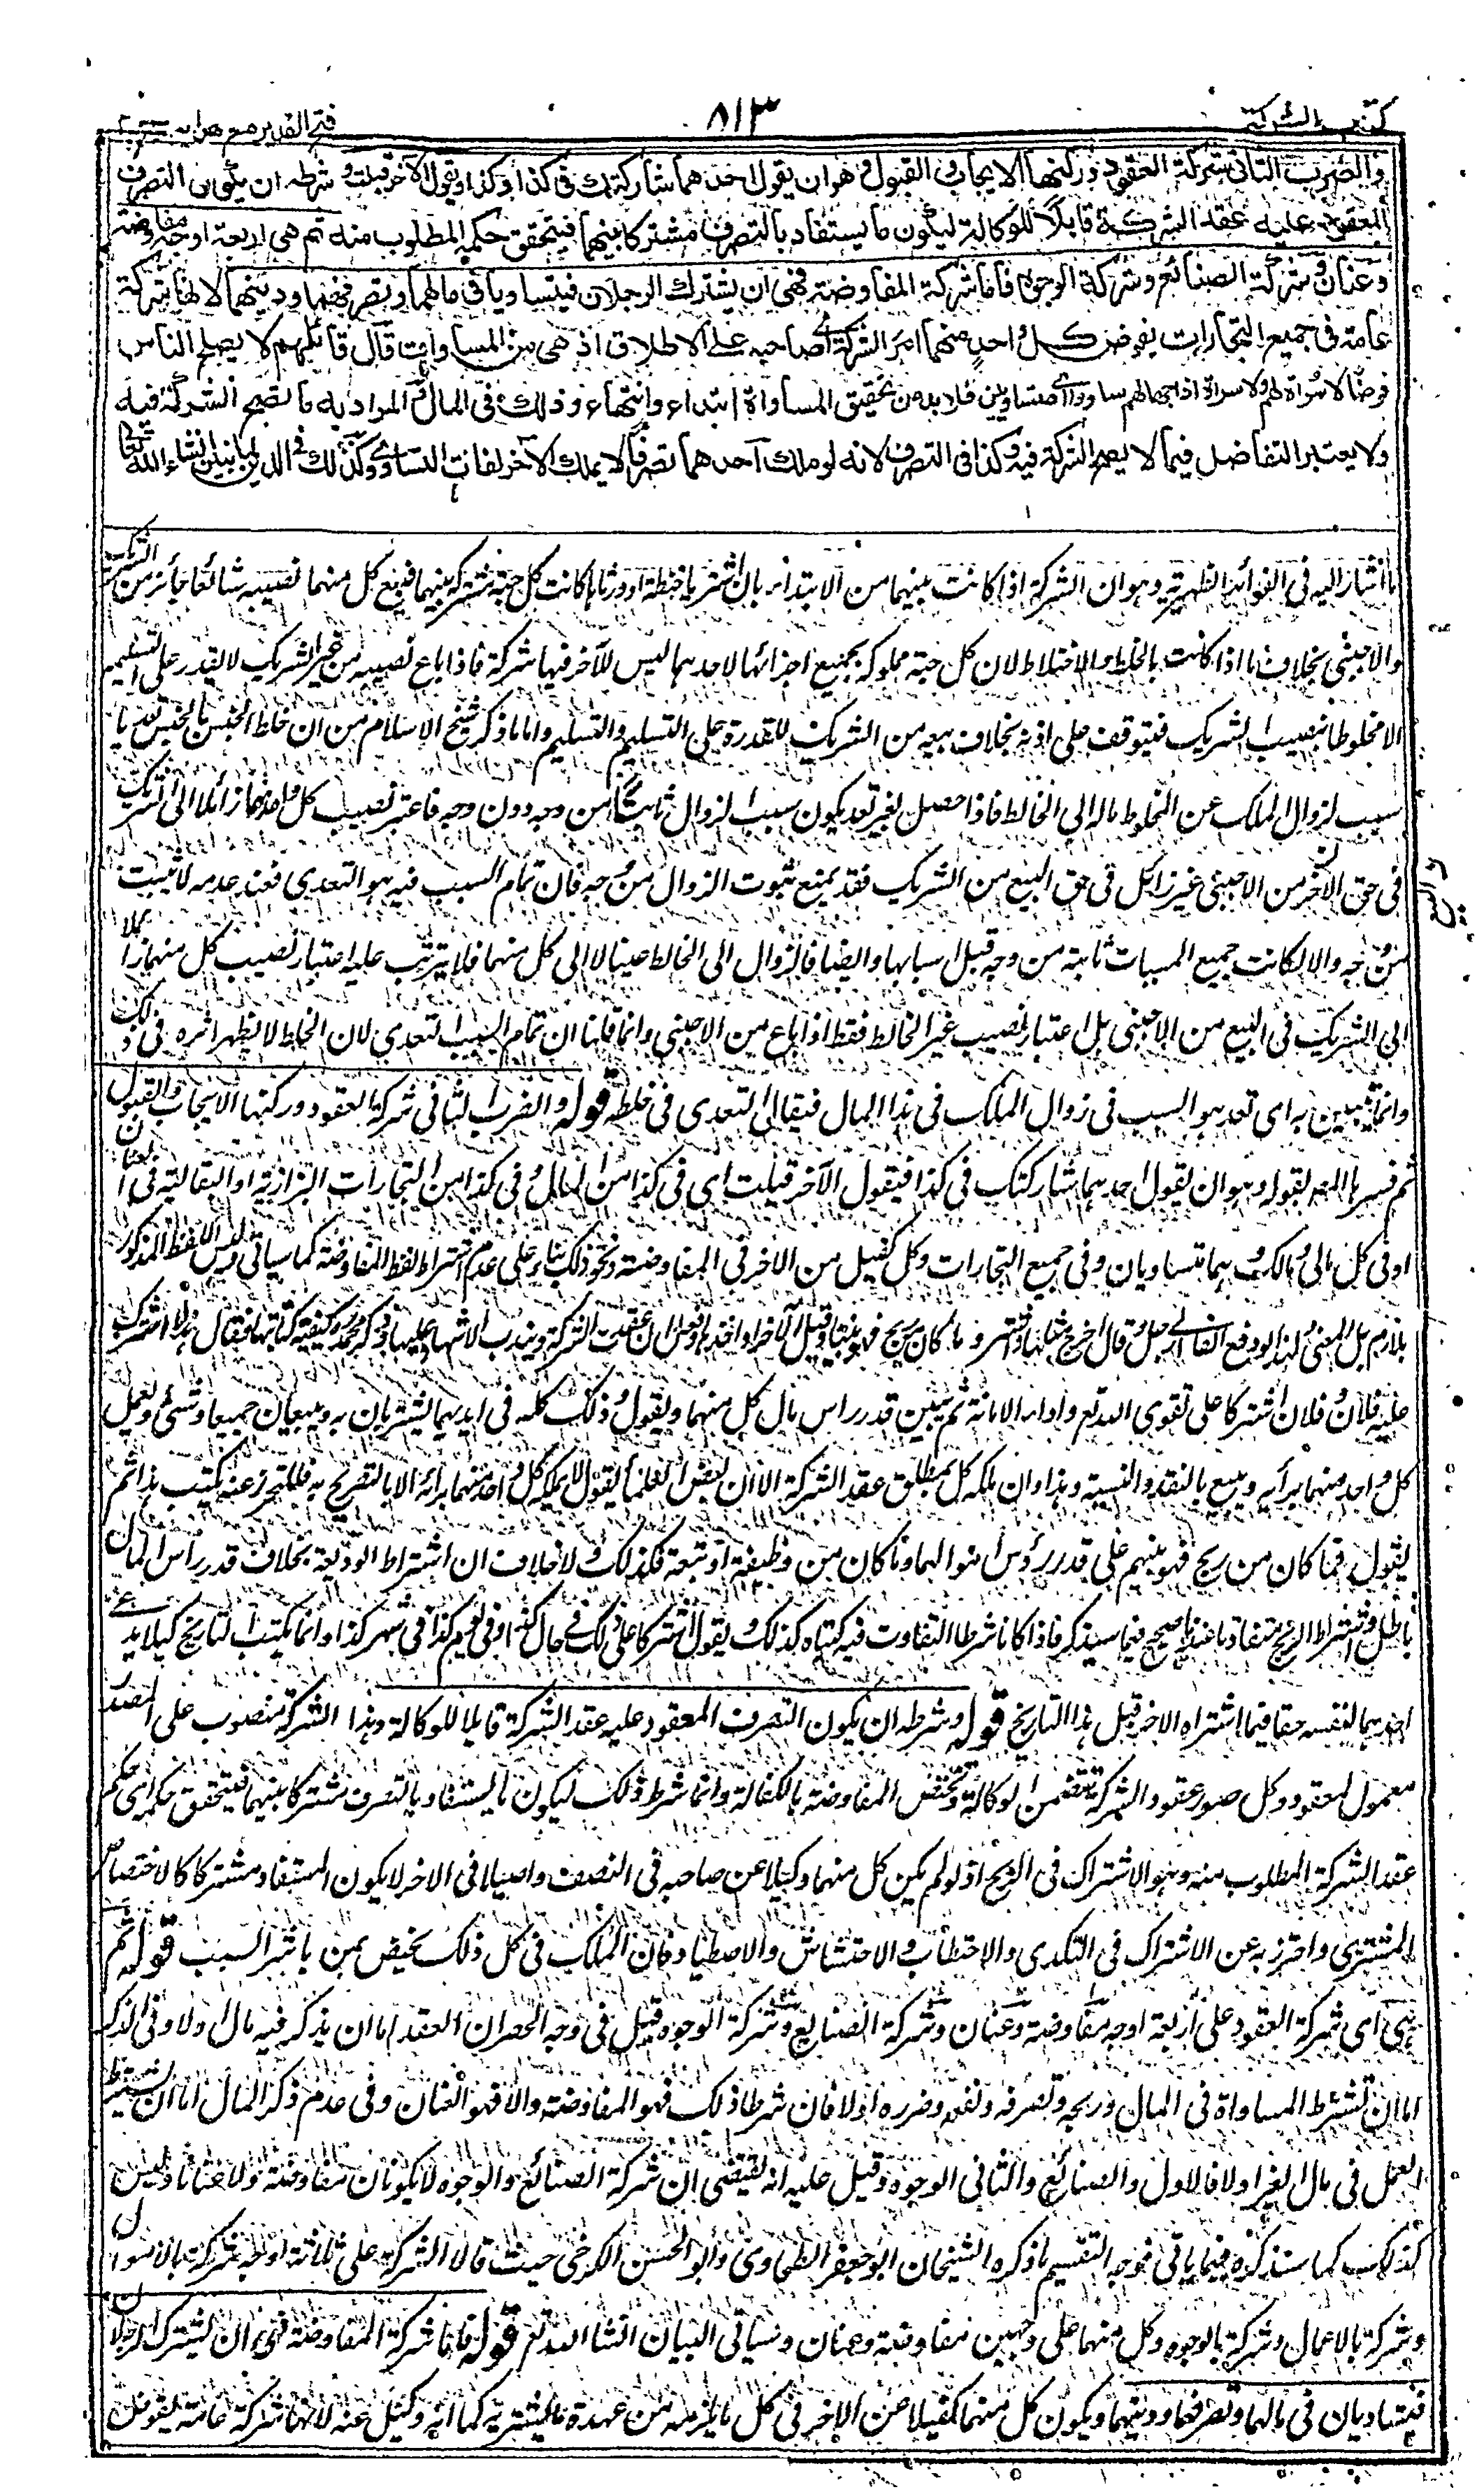 كتاب الشركة
٨١٣
فتح القدير مع هدايه
والضرب الثاني شركة العقود وركنها الايجاب والقبول وهو ان يقول احدهما شاركتك في كذا وكذا ويقول الآخر قبلت وشرطه ان يكون التصرف
المعقود عليه عقد الشركة قابلا للوكالة ليكون ما يستفاد بالتصرف مشتركا بينهما فيتحقق حكمه المطلوب منه ثم هي اربعة اوجه مفاوضة
وعنان وشركة الصنائع وشركة الوجوه فاما شركة المفاوضة فهي ان يشترك الرجلان فيتساويا في مالهما وتصرفهما ودينهما لانها شركة
عامة في جميع التجارات يفوض كل واحد منهما امر الشركة الى صاحبه على الاطلاق اذ هي من المساواة قال قائلهم لا يصلح الناس
فوضا لا سراة لهم ولا سراة اذا جهالهم سادوا اى متساويين فلا بد من تحقيق المساواة ابتداء وانتهاء وذلك في المال والمراد به ما تصح الشركة فيه
ولا يعتبر التفاضل فيما لا يصح الشركة فيه وكذا في التصرف لانه لو ملك احدهما تصرفا لا يملك الآخر لفات التساوي وكذلك في الدين لما نبين ان شاء الله تعالى
ما اشار اليه في الفوائد الظهيرية وهو ان الشركة اذا كانت بينهما من الابتداء بان اشتريا حنطة او ورثاها كانت كل حبة مشتركة بينهما فبيع كل منهما نصيبه شائعا جائز من الشريك
والاجنبي بخلاف ما اذا كانت بالخلط والاختلاط لان كل حبة مملوكة بجميع اجزائها لاحدهما ليس للآخر فيها شركة فاذا باع نصيبه من غير الشريك لا يقدر على تسليمه
الا مخلوطا بنصيب الشريك فيتوقف على اذنه بخلاف بيعه من الشريك للقدرة على التسليم والتسلم واما ما ذكر شيخ الاسلام من ان خلط الجنس بالجنس تعديا
سبب لزوال الملك عن المخلوط ماله الى الخالط فاذا حصل بغير تعد يكون سبب الزوال ثابتا من وجه دون وجه فاعتبر نصيب كل واحد منهما زائلا الى الشريك
في حق البيع من الاجنبي غير زائل في حق البيع من الشريك فقد يمنع ثبوت الزوال من وجه فان تمام السبب فيه هو التعدي فعند عدمه لا يثبت
من وجه والا لكانت جميع المسببات ثابتة من وجه قبل اسبابها وايضا فالزوال الى الخالط عينا لا الى كل منهما فلا يترتب عليه اعتبار نصيب كل منهما زائلا
الى الشريك في البيع من الاجنبي بل اعتبار نصيب غير الخالط فقط اذا باع من الاجنبي وانما قلنا ان تمام السبب التعدي لان الخلط لا يظهر اثره في ذلك
وانما يتبين به اى تعد هو السبب في زوال الملك في هذا المال فيقال التعدي في خلطه قوله والضرب الثاني شركة العقود وركنها الايجاب والقبول
ثم فسرهما الله بقوله وهو ان يقول احدهما شاركتك في كذا فيقول الآخر قبلت اى في كذا من المال وفي كذا من التجارات البزازية او البقالية في العنان
او في كل مالي ومالك وهما متساويان وفي جميع التجارات وكل كفيل من الآخر في المفاوضة ونحو ذلك بناء على عدم اشتراط لفظ المفاوضة كما سياتي وليس اللفظ المذكور
بلازم بل المعنى ولهذا لو دفع الفا الى رجل وقال اخرج مثلها واشتر وما كان من ربح فهو بيننا وقبل الآخر او اخذها وفعل انعقدت الشركة ويندب الاشهاد عليها وذكر محمد كيفية كتابتها فقال هذا ما اشترك
عليه فلان وفلان اشتركا على تقوى الله تعالى واداء الامانة ثم يبين قدر راس مال كل منهما ويقول وذلك كله في ايديهما يشتريان به ويبيعان جميعا وشتى ويعمل
كل واحد منهما برأيه ويبيع بالنقد والنسيئة وهذا وان ملكه كل بمطلق عقد الشركة الا ان بعض العلماء يقول لا يملكه كل واحد منهما برائه الا بالتصريح به فللتحرز عنه يكتب هذا ثم
يقول فما كان من ربح فهو بينهم على قدر رؤس اموالهما وما كان من وضيعة او تبعة فكذلك ولا خلاف ان اشتراط الوضيعة بخلاف قدر راس المال
باطل واشتراط الربح متفاوتا عندنا صحيح فيما سيذكر فاذا كانا شرطا التفاوت فيه كتباه كذلك ويقول اشتركا على ذلك في حال كذا وفي يوم كذا في شهر كذا وانما يكتب التاريخ كيلا يدعى
احدهما لنفسه حقا فيما اشتراه الآخر قبل هذا التاريخ قوله وشرطه ان يكون التصرف المعقود عليه عقد الشركة قابلا للوكالة وهذا الشركة منصوب على المصدر
معمول لمعقود وكل صور عقود الشركة تتضمن الوكالة وتختص المفاوضة بالكفالة وانما شرط ذلك ليكون ما يستفاد بالتصرف مشتركا بينهما فيتحقق حكمه اى حكم
عقد الشركة المطلوب منه وهو الاشتراك في الربح اذ لو لم يكن كل منهما وكيلا عن صاحبه في النصف واصيلا في الآخر لا يكون المستفاد مشتركا لاختصاص
المشتري واحترز به عن الاشتراك في التكدي والاحتطاب والاحتشاش والاصطياد فان الملك في كل ذلك يختص بمن باشر السبب قوله ثم
هي اى شركة العقود على اربعة اوجه مفاوضة وعنان وشركة الصنايع وشركة الوجوه قيل في وجه الحصر ان العقد اما ان يذكر فيه مال اولا وفي الذكر
اما ان تشترط المساواة في المال وربحه وتصرفه ونفعه وضرره اولا فان شرطا ذلك فهو المفاوضة والا فهو العنان وفي عدم ذكر المال اما ان يشترط
العمل في مال الغير اولا فالاول والصنائع والثاني الوجوه وقيل عليه انه يقتضي ان شركة الصنائع والوجوه لا يكونان مفاوضة ولا عنانا وليس
كذلك كما سنذكره فيما ياتي فوجه التقسيم ما ذكره الشيخان ابو جعفر الطحاوي وابو الحسن الكرخي حيث قالا الشركة على ثلاثة اوجه شركة بالاموال
وشركة بالاعمال وشركة بالوجوه وكل منهما على وجهين مفاوضة وعنان وسياتي البيان انشاء الله تعالى قوله فاما شركة المفاوضة فهي ان يشترك الرجلان
فيتساويان في مالهما وتصرفهما ودينهما ويكون كل منهما كفيلا عن الآخر في كل ما يلزمه من عهدة ما يشتريه كما انه وكيل عنه لانها شركة عامة يفوض